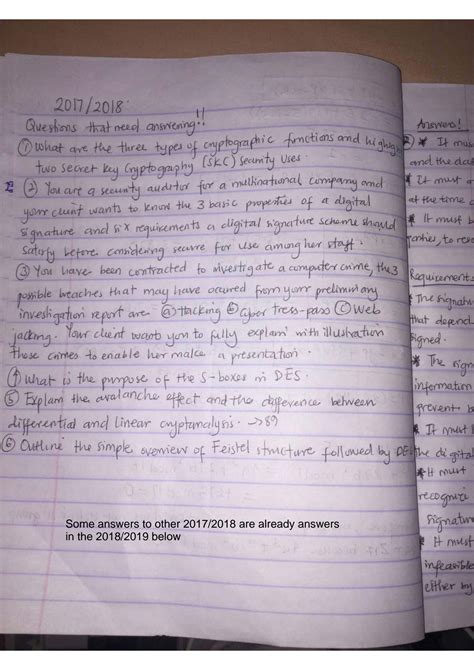 2017/2018:
Questions that need answering!!
① What are the three types of cryptographic functions and highlight
two secret key Cryptography (SKC) security uses.
② You are a security auditor for a multinational company and
your client wants to know the 3 basic properties of a digital
signature and six requirements a digital signature scheme should
satisfy before considering secure for use among her staff.
③ You have been contracted to investigate a computer crime, the 3
possible breaches that may have occured from your preliminary
investigation report are ⓐ Hacking ⓑ Cyber tress-pass Ⓒ Web
jacking. Your client want you to fully explain with illustration
those crimes to enable her make a presentation.
④ What is the purpose of the S-boxes in DES.
⑤ Explain the avalanche effect and the difference between
differential and linear cryptanalysis. → 89
⑥ Outline the simple overview of Feistel structure followed by DES
Some answers to other 2017/2018 are already answers
in the 2018/2019 below
Answers!
② * It must
and the dat
* It must
at the time
* It must
parties, to
Requirements
* The signatu
that depend
signed.
* The sign
information
prevent
* It must
the digital
* It must
recogni
Signature
* It must
infeasible
either by